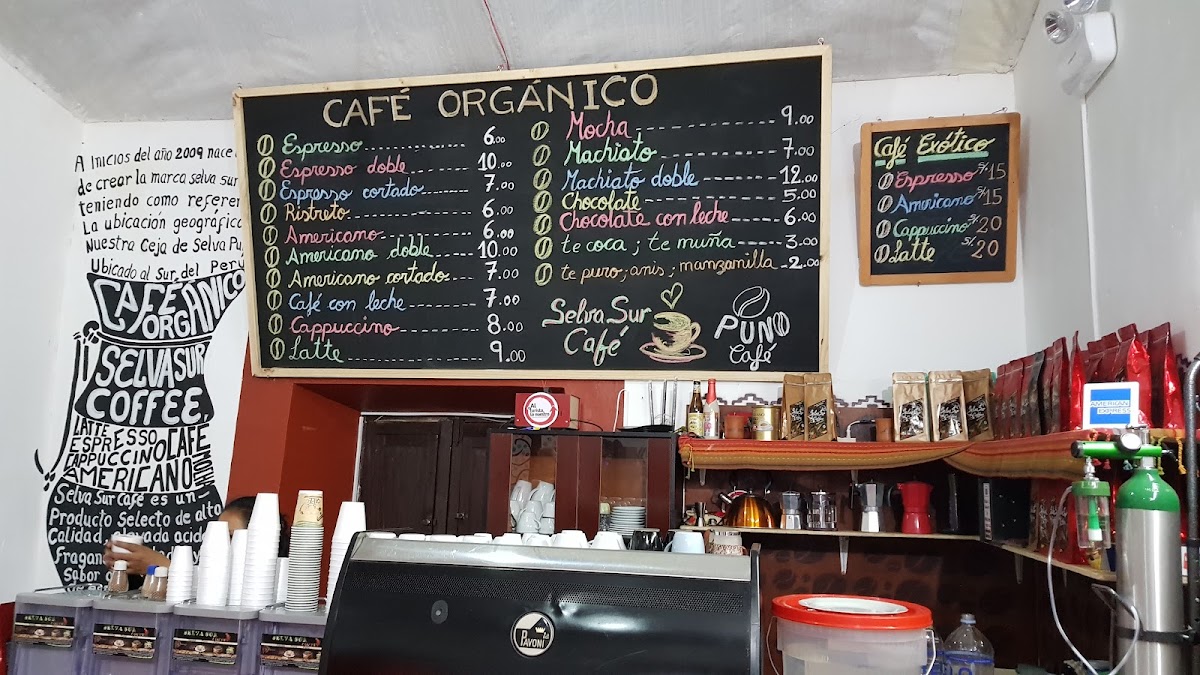 A Inicios del año 2009 nace
de crear la marca selva sur
teniendo como referen
La ubicación geográfic
Nuestra Ceja de Selva Pu
Ubicado al Sur del Perú
CAFÉ ORGÁNICO
SELVA SUR
COFFEE
LATTE
ESPRESSO CAFÉ
CAPPUCCINO
AMERICANO
MOCHA
Selva Sur Café es un
Producto Selecto de alto
Calidad, elevada acide
Fragan
Sabor
CAFÉ ORGÁNICO
Espresso 6.00
Espresso doble 10.00
Espresso cortado 7.00
Ristreto 6.00
Americano 6.00
Americano doble 10.00
Americano cortado 7.00
Café con leche 7.00
Cappuccino 8.00
Latte 9.00
Mocha 9.00
Machiato 7.00
Machiato doble 12.00
Chocolate 5.00
Chocolate con leche 6.00
te coca ; te muña 3.00
te puro; anis ; manzanilla 2.00
Selva Sur
Café
PUNO
Café
Café Exótico
Espresso S/. 15
Americano S/. 15
Cappuccino S/. 20
Latte S/. 20
AMERICAN
EXPRESS
la
PAVONI
SELVA SUR
SELVA SUR
SELVA SUR
SELVA SUR